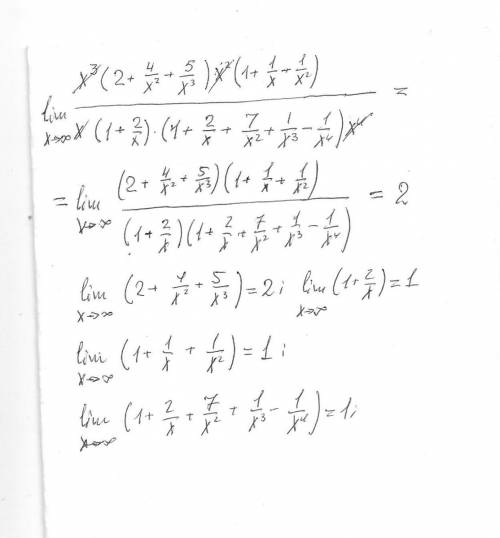 lim x→∞ x³(2 + 4/x² + 5/x³) x²(1 + 1/x + 1/x²) / x(1 + 2/x)·(1 + 2/x + 7/x² + 1/x³ - 1/x⁴)x⁴ =
= lim x→∞ (2 + 4/x² + 5/x³)(1 + 1/x + 1/x²) / (1 + 2/x)(1 + 2/x + 7/x² + 1/x³ - 1/x⁴) = 2
lim x→∞ (2 + 4/x² + 5/x³) = 2; lim x→∞ (1 + 2/x) = 1
lim x→∞ (1 + 1/x + 1/x²) = 1;
lim x→∞ (1 + 2/x + 7/x² + 1/x³ - 1/x⁴) = 1;